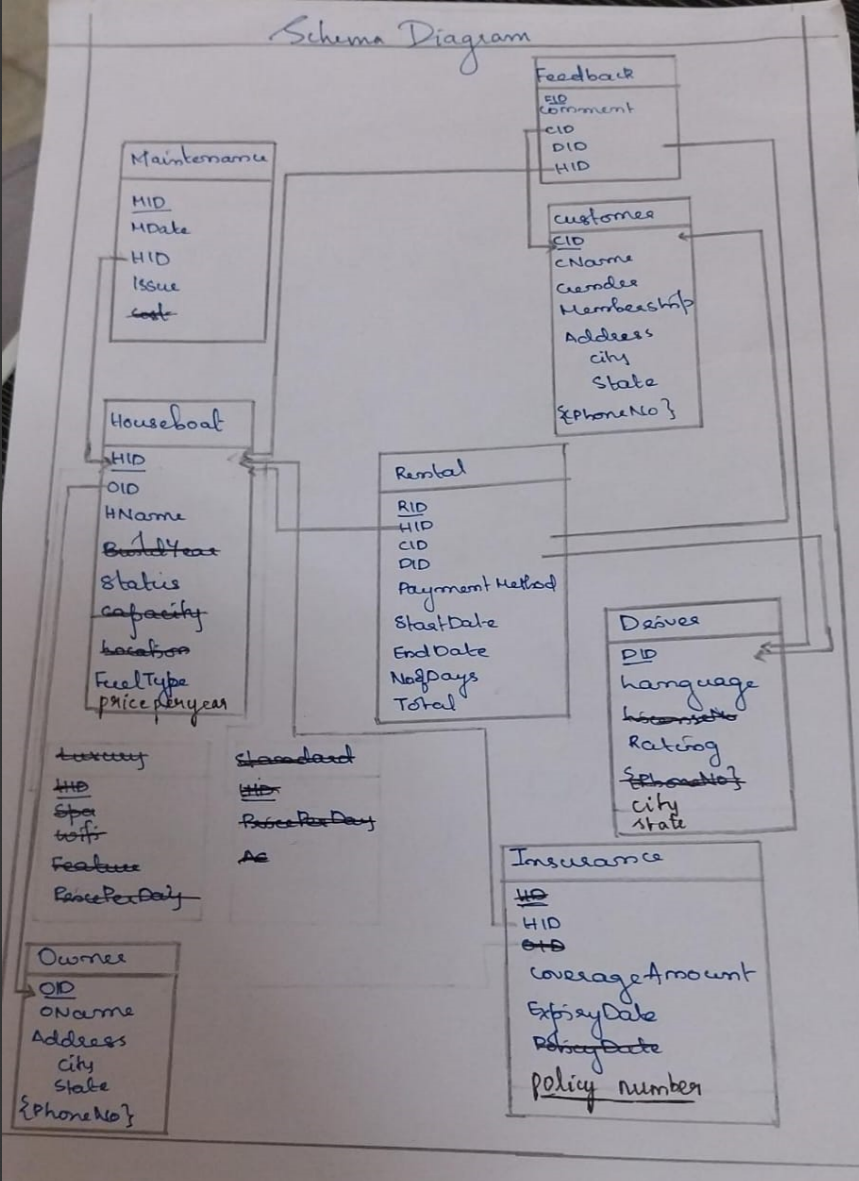 Schema Diagram
Feedback
FID
Comment
CID
DID
HID
Maintenance
MID
MDate
HID
Issue
cost
customer
CID
CName
Gender
Membership
Address
city
State
{PhoneNo}
Houseboat
HID
OID
HName
BuildYear
Status
capacity
Location
FuelType
priceperyear
Rental
RID
HID
CID
DID
Payment Method
StartDate
EndDate
NoofDays
Total
Driver
DID
Language
LicenseNo
Rating
{PhoneNo}
city
state
Luxury
HID
Spa
wifi
Feature
PricePerDay
Standard
HID
PricePerDay
AC
Insurance
HID
OID
CoverageAmount
ExpiryDate
PolicyDate
policy number
Owner
OID
OName
Address
City
State
{PhoneNo}